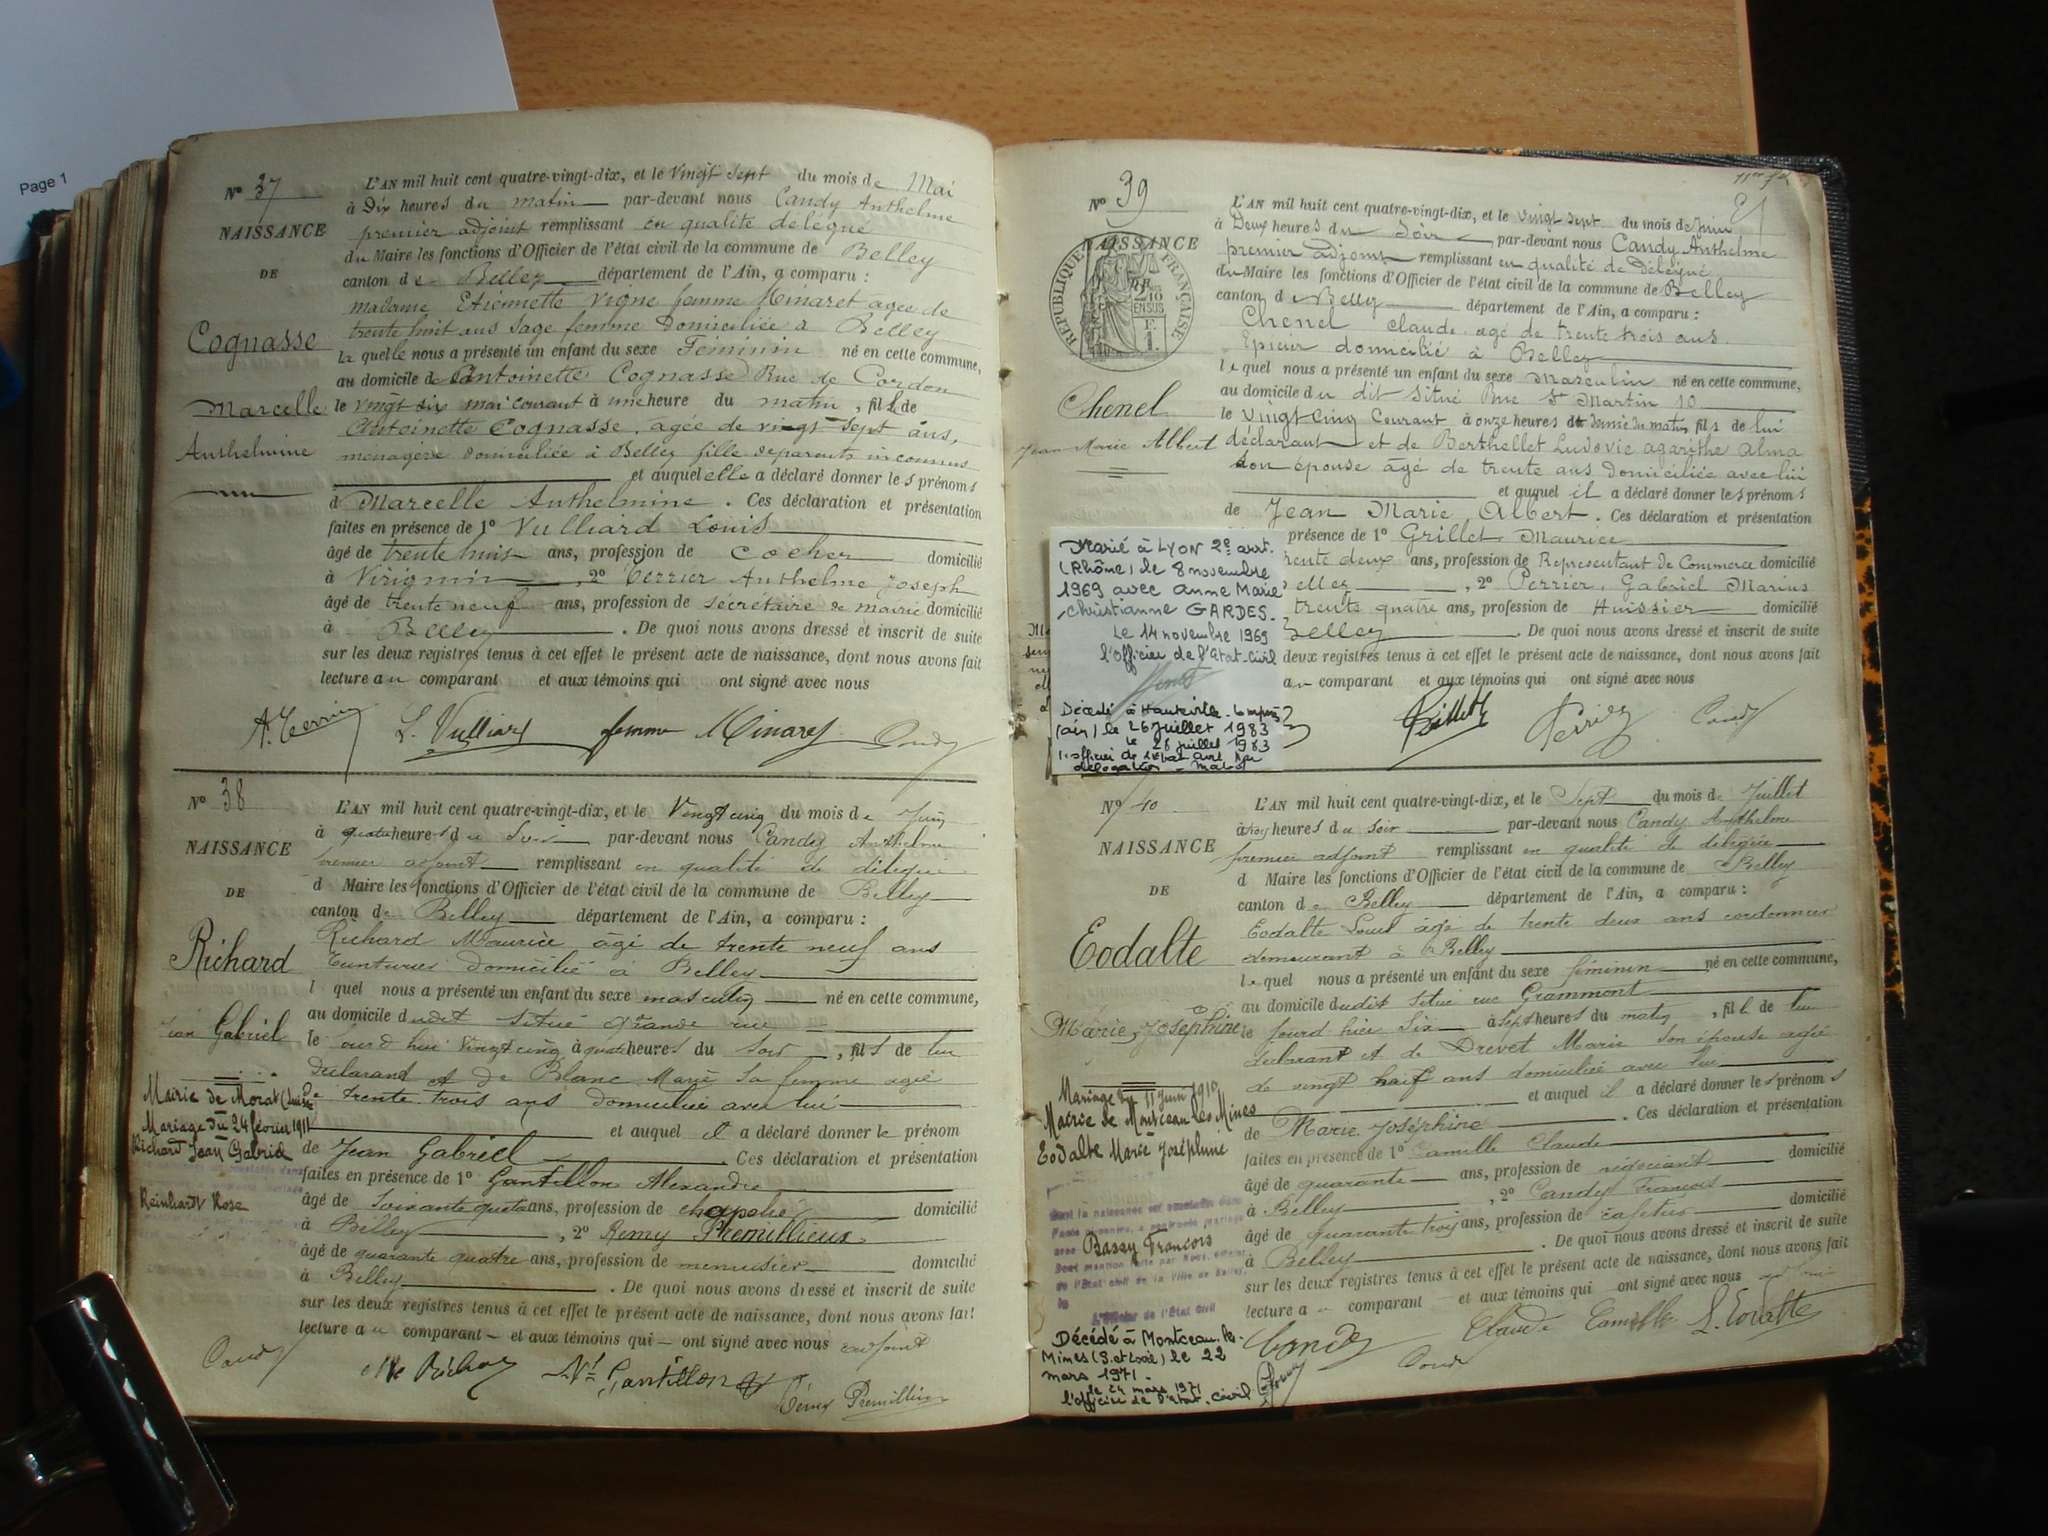 Page 1
N° 37
NAISSANCE
DE
Cognasse
Marcelle
Anthelmine
L'AN mil huit cent quatre-vingt-dix, et le Vingt sept du mois de Mai
à Dix heures du matin par-devant nous Candy Anthelme
premier adjoint remplissant en qualité délégué
du Maire les fonctions d'Officier de l'état civil de la commune de Belley
canton de Belley département de l'Ain, a comparu :
madame Etiennette Vigne femme Minaret agée de
trente huit ans Sage femme Domiciliée à Belley
la quelle nous a présenté un enfant du sexe Féminin né en cette commune,
au domicile de Antoinette Cognasse Rue de Cordon
le vingt six mai courant à une heure du matin, fille de
Antoinette Cognasse, agée de vingt sept ans,
menagère domiciliée à Belley fille de parents inconnus
et auquel elle a déclaré donner les prénoms
d Marcelle Anthelmine. Ces déclaration et présentation
faites en présence de 1° Vulliard Louis
âgé de trente huit ans, profession de cocher domicilié
à Virignin, 2° Terrier Anthelme Joseph
âgé de trente neuf ans, profession de sécrétaire de mairie domicilié
à Belley. De quoi nous avons dressé et inscrit de suite
sur les deux registres tenus à cet effet le présent acte de naissance, dont nous avons fait
lecture au comparant et aux témoins qui ont signé avec nous
A. Terrier L. Vulliard femme Minaret Candy
N° 38
NAISSANCE
DE
Richard
Jean Gabriel
Mairie de Morat (Suisse)
Mariage du 24 février 1911
Richard Jean Gabriel
Reinhardt Rose
L'AN mil huit cent quatre-vingt-dix, et le Vingt cinq du mois de Juin
à quatre heures du Soir par-devant nous Candy Anthelme
premier adjoint remplissant en qualité de délégué
d Maire les fonctions d'Officier de l'état civil de la commune de Belley
canton de Belley département de l'Ain, a comparu :
Richard Maurice âgé de trente neuf ans
domicilié à Belley
l quel nous a présenté un enfant du sexe masculin né en cette commune,
au domicile dudit situé grande rue
le jourd'hui Vingt cinq à quatre heures du soir, fils de lui
Déclarant et de Blanc Marie sa femme agée
de trente trois ans domiciliée avec lui
et auquel il a déclaré donner le prénom
de Jean Gabriel. Ces déclaration et présentation
faites en présence de 1° Gantillon Alexandre
âgé de Soixante quatre ans, profession de chapelier domicilié
à Belley, 2° Remy Premillieux
âgé de quarante quatre ans, profession de menuisier domicilié
à Belley. De quoi nous avons dressé et inscrit de suite
sur les deux registres tenus à cet effet le présent acte de naissance, dont nous avons fait
lecture au comparant et aux témoins qui ont signé avec nous adjoint
Candy Gantillon Remy Premillieux
N° 39
NAISSANCE
RÉPUBLIQUE FRANÇAISE
2/10
EN SUS
F.
1.
Chenel
Jean Marie Albert
L'AN mil huit cent quatre-vingt-dix, et le vingt sept du mois de Juin
à Deux heures du Soir par-devant nous Candy Anthelme
premier adjoint remplissant en qualité de Délégué
du Maire les fonctions d'Officier de l'état civil de la commune de Belley
canton de Belley département de l'Ain, a comparu :
Chenel Claude agé de trente trois ans
Epicier domicilié à Belley
le quel nous a présenté un enfant du sexe Masculin né en cette commune,
au domicile du dit situé Rue St Martin 10
le Vingt Cinq Courant à onze heures et demie du matin, fils de lui
déclarant et de Berthellet Ludovie agarithe alma
son épouse âgé de trente ans Domiciliée avec lui
et auquel il a déclaré donner les prénoms
de Jean Marie Albert. Ces déclaration et présentation
présence de 1° Grillet Maurice
trente deux ans, profession de Représentant de Commerce domicilié
Belley, 2° Perrier, Gabriel Marius
trente quatre ans, profession de Huissier domicilié
Belley. De quoi nous avons dressé et inscrit de suite
deux registres tenus à cet effet le présent acte de naissance, dont nous avons fait
au comparant et aux témoins qui ont signé avec nous
Grillet Perrier Candy
Marié à LYON 2e arrt.
(Rhône) le 8 novembre
1969 avec Anne Marie
Christianne GARDES.
Le 14 novembre 1969
l'Officier de l'Etat-Civil
Décédé à Hauteville-Lompnes
(Ain) le 26 juillet 1983
le 28 juillet 1983
l'officier de l'Etat Civil par
délégation
N° 40
NAISSANCE
DE
Eodalte
Marie Joséphine
Mariage du 11 juin 1910
Mairie de Montceau les Mines
Eodalte Marie Joséphine
Bassy François
de l'Etat civil de la Ville de Belley.
L'Officier de l'Etat Civil
Décédé à Montceau-les-
Mines (S. et Loire) le 22
mars 1971.
le 24 mars 1971
l'officier de l'Etat-civil
L'AN mil huit cent quatre-vingt-dix, et le Sept du mois de Juillet
à trois heures du soir par-devant nous Candy Anthelme
premier adjoint remplissant en qualité de délégué
d Maire les fonctions d'Officier de l'état civil de la commune de Belley
canton de Belley département de l'Ain, a comparu :
Eodalte Louis âgé de trente deux ans cordonnier
demeurant à Belley
le quel nous a présenté un enfant du sexe féminin né en cette commune,
au domicile dudit situé rue Grammont
le jourd'hui Six à Sept heures du matin, fille de lui
déclarant et de Drevet Marie son épouse agée
de vingt huit ans domiciliée avec lui
et auquel il a déclaré donner les prénoms
de Marie Joséphine. Ces déclaration et présentation
faites en présence de 1° Camille Claude
âgé de quarante ans, profession de négociant domicilié
à Belley, 2° Candy François
âgé de quarante trois ans, profession de cafetier domicilié
à Belley. De quoi nous avons dressé et inscrit de suite
sur les deux registres tenus à cet effet le présent acte de naissance, dont nous avons fait
lecture au comparant et aux témoins qui ont signé avec nous adjoint
Candy Claude Camille L. Eodalte
Candy